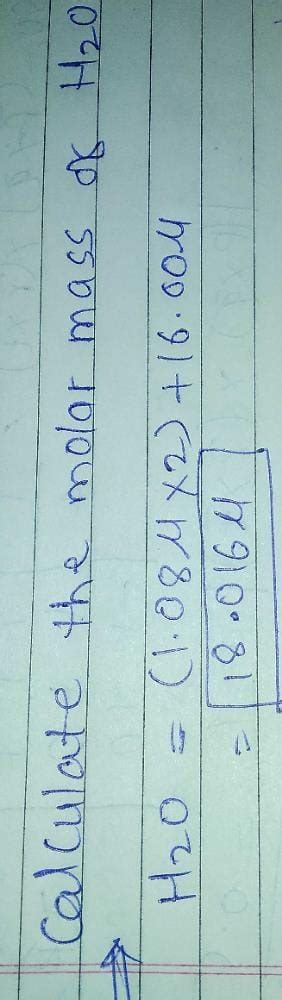 Calculate the molar mass of H2O
⇒ H2O = (1.08u×2)+16.00u
= 18.016u